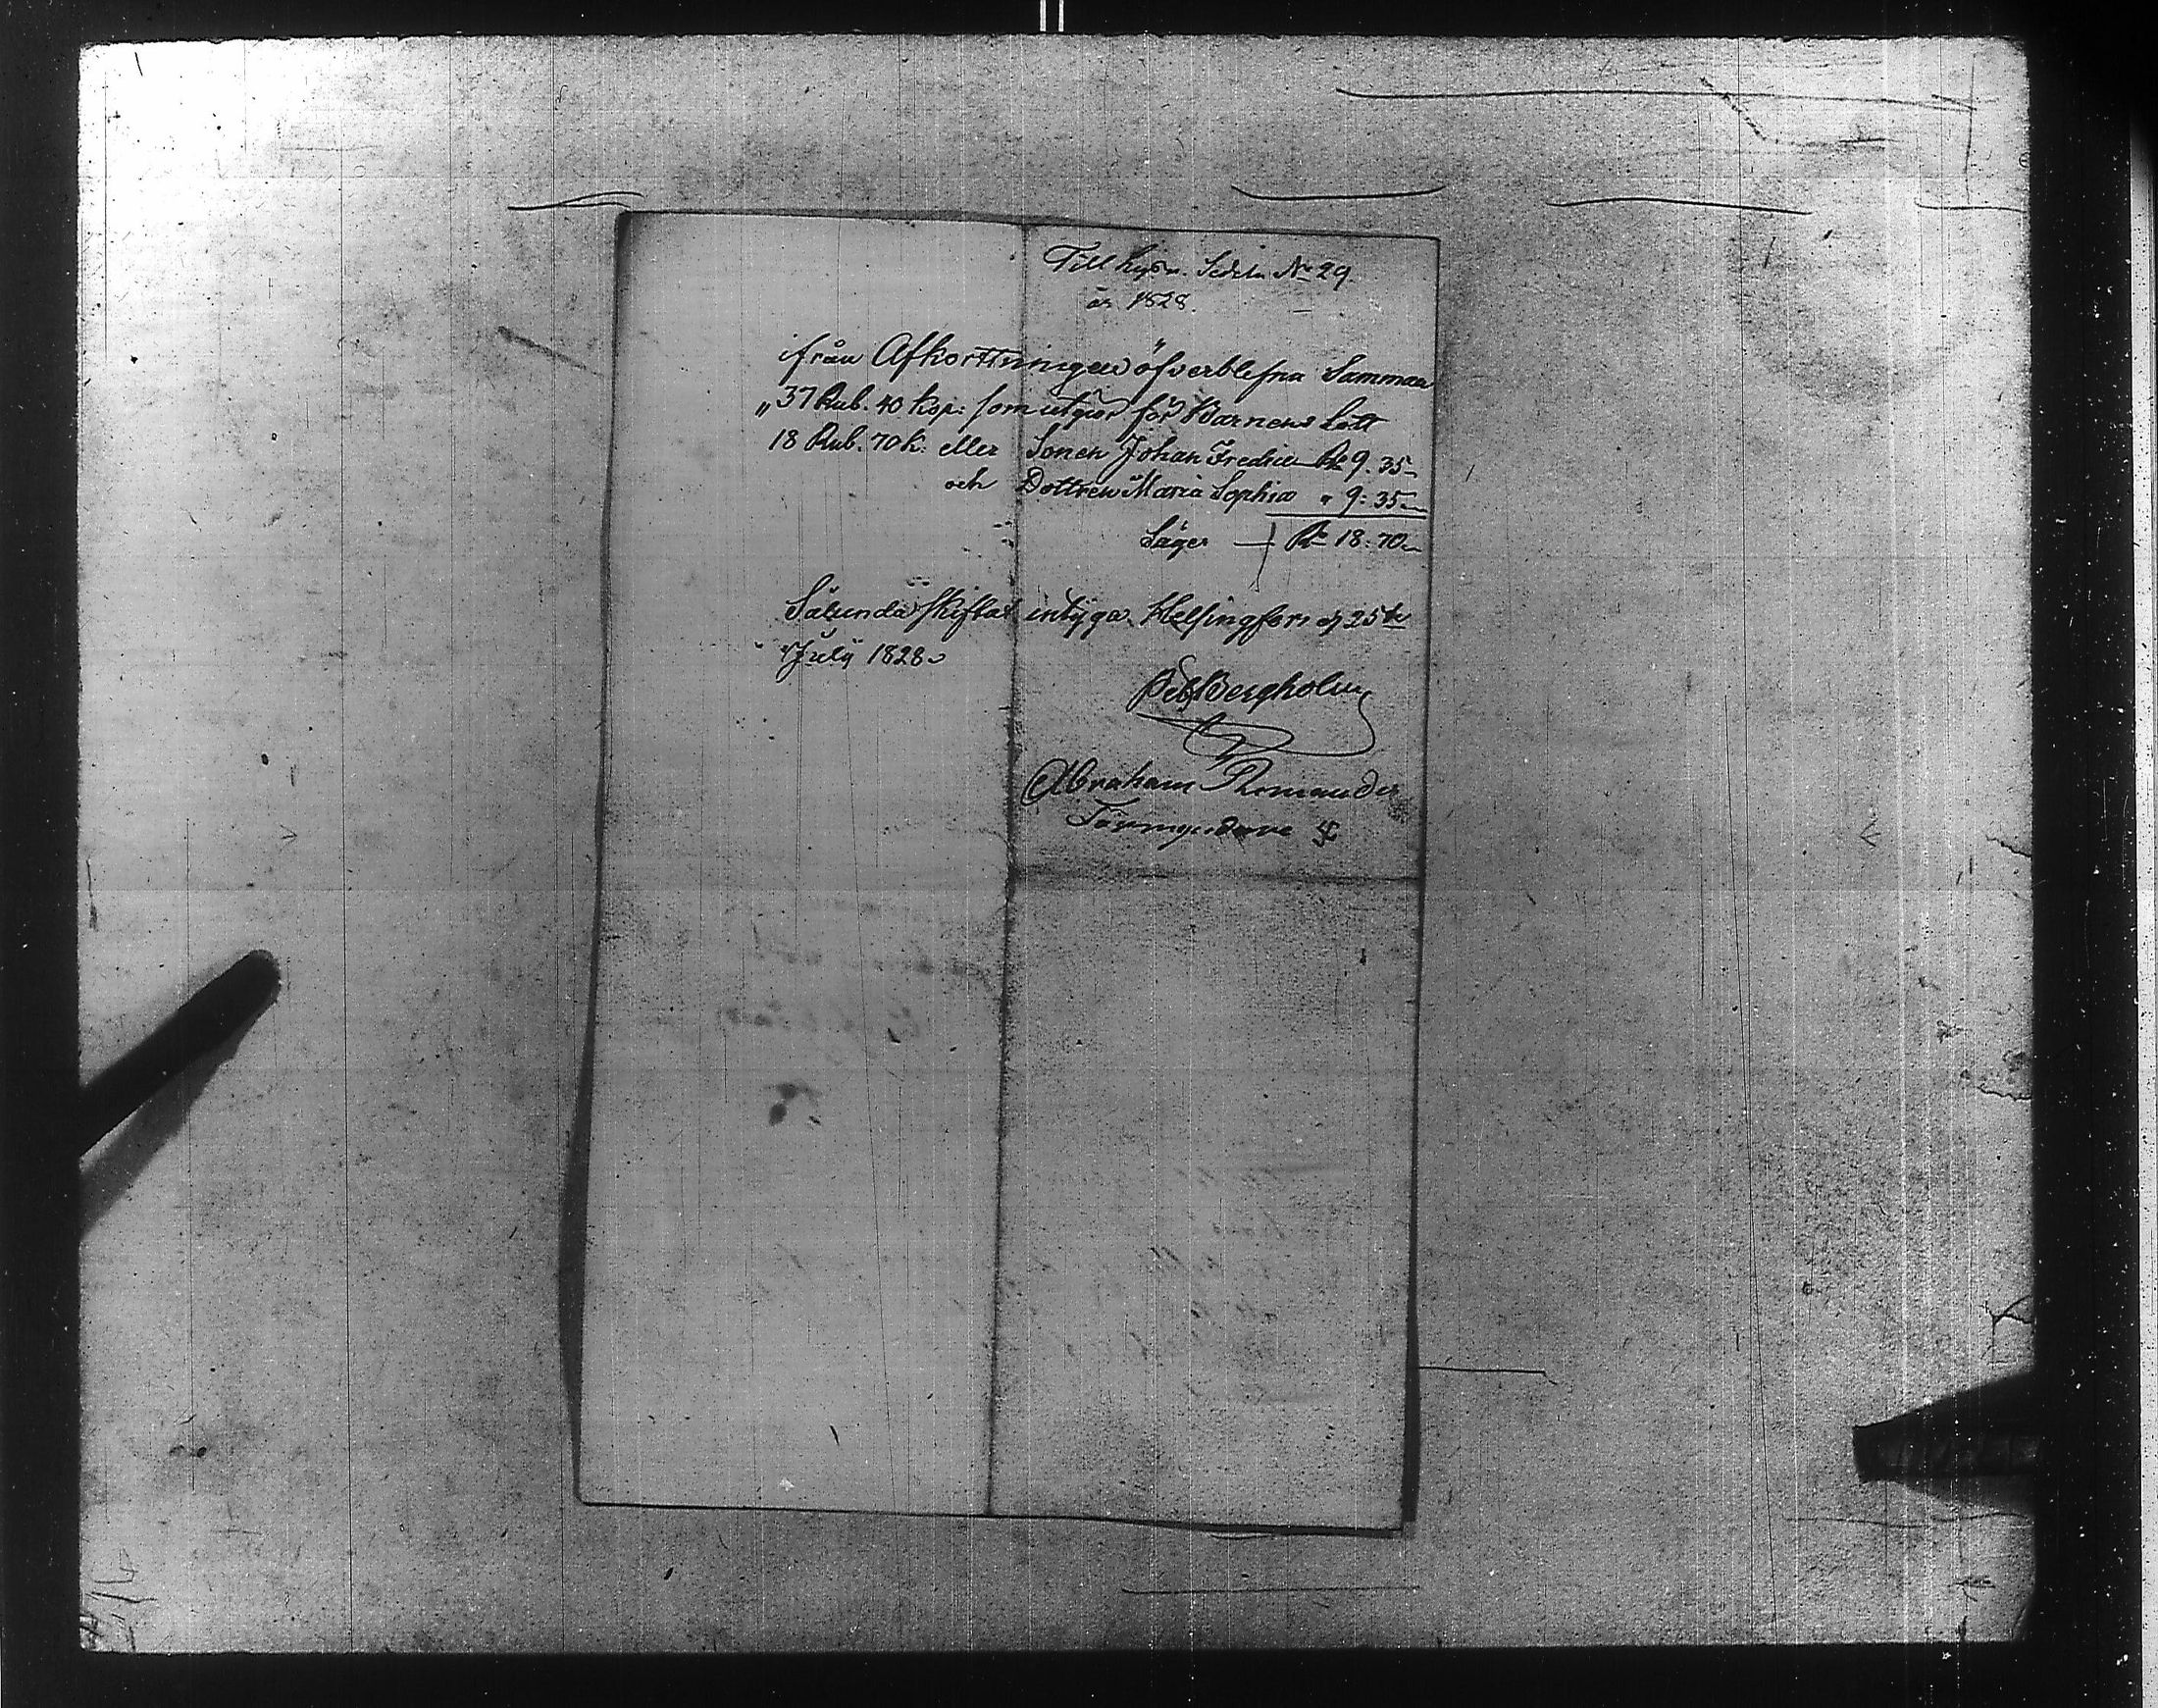 Till Sedeln No 29.
år 1828.
ifrån Afkorttningen öfverblefna Summan
„ 37 Rub. 40 kop: som utgör för Barnens Lott
18 Rub. 70 K: eller Sonen Johan Fredric Ro 9. 35
och Dottren Maria Sophia " 9: 35
Säger Ro 18: 70
Sålunda skiftat intyga. Helsingfors d 25te
July 1828
Pet Bergholm
Abraham
Förmyndare